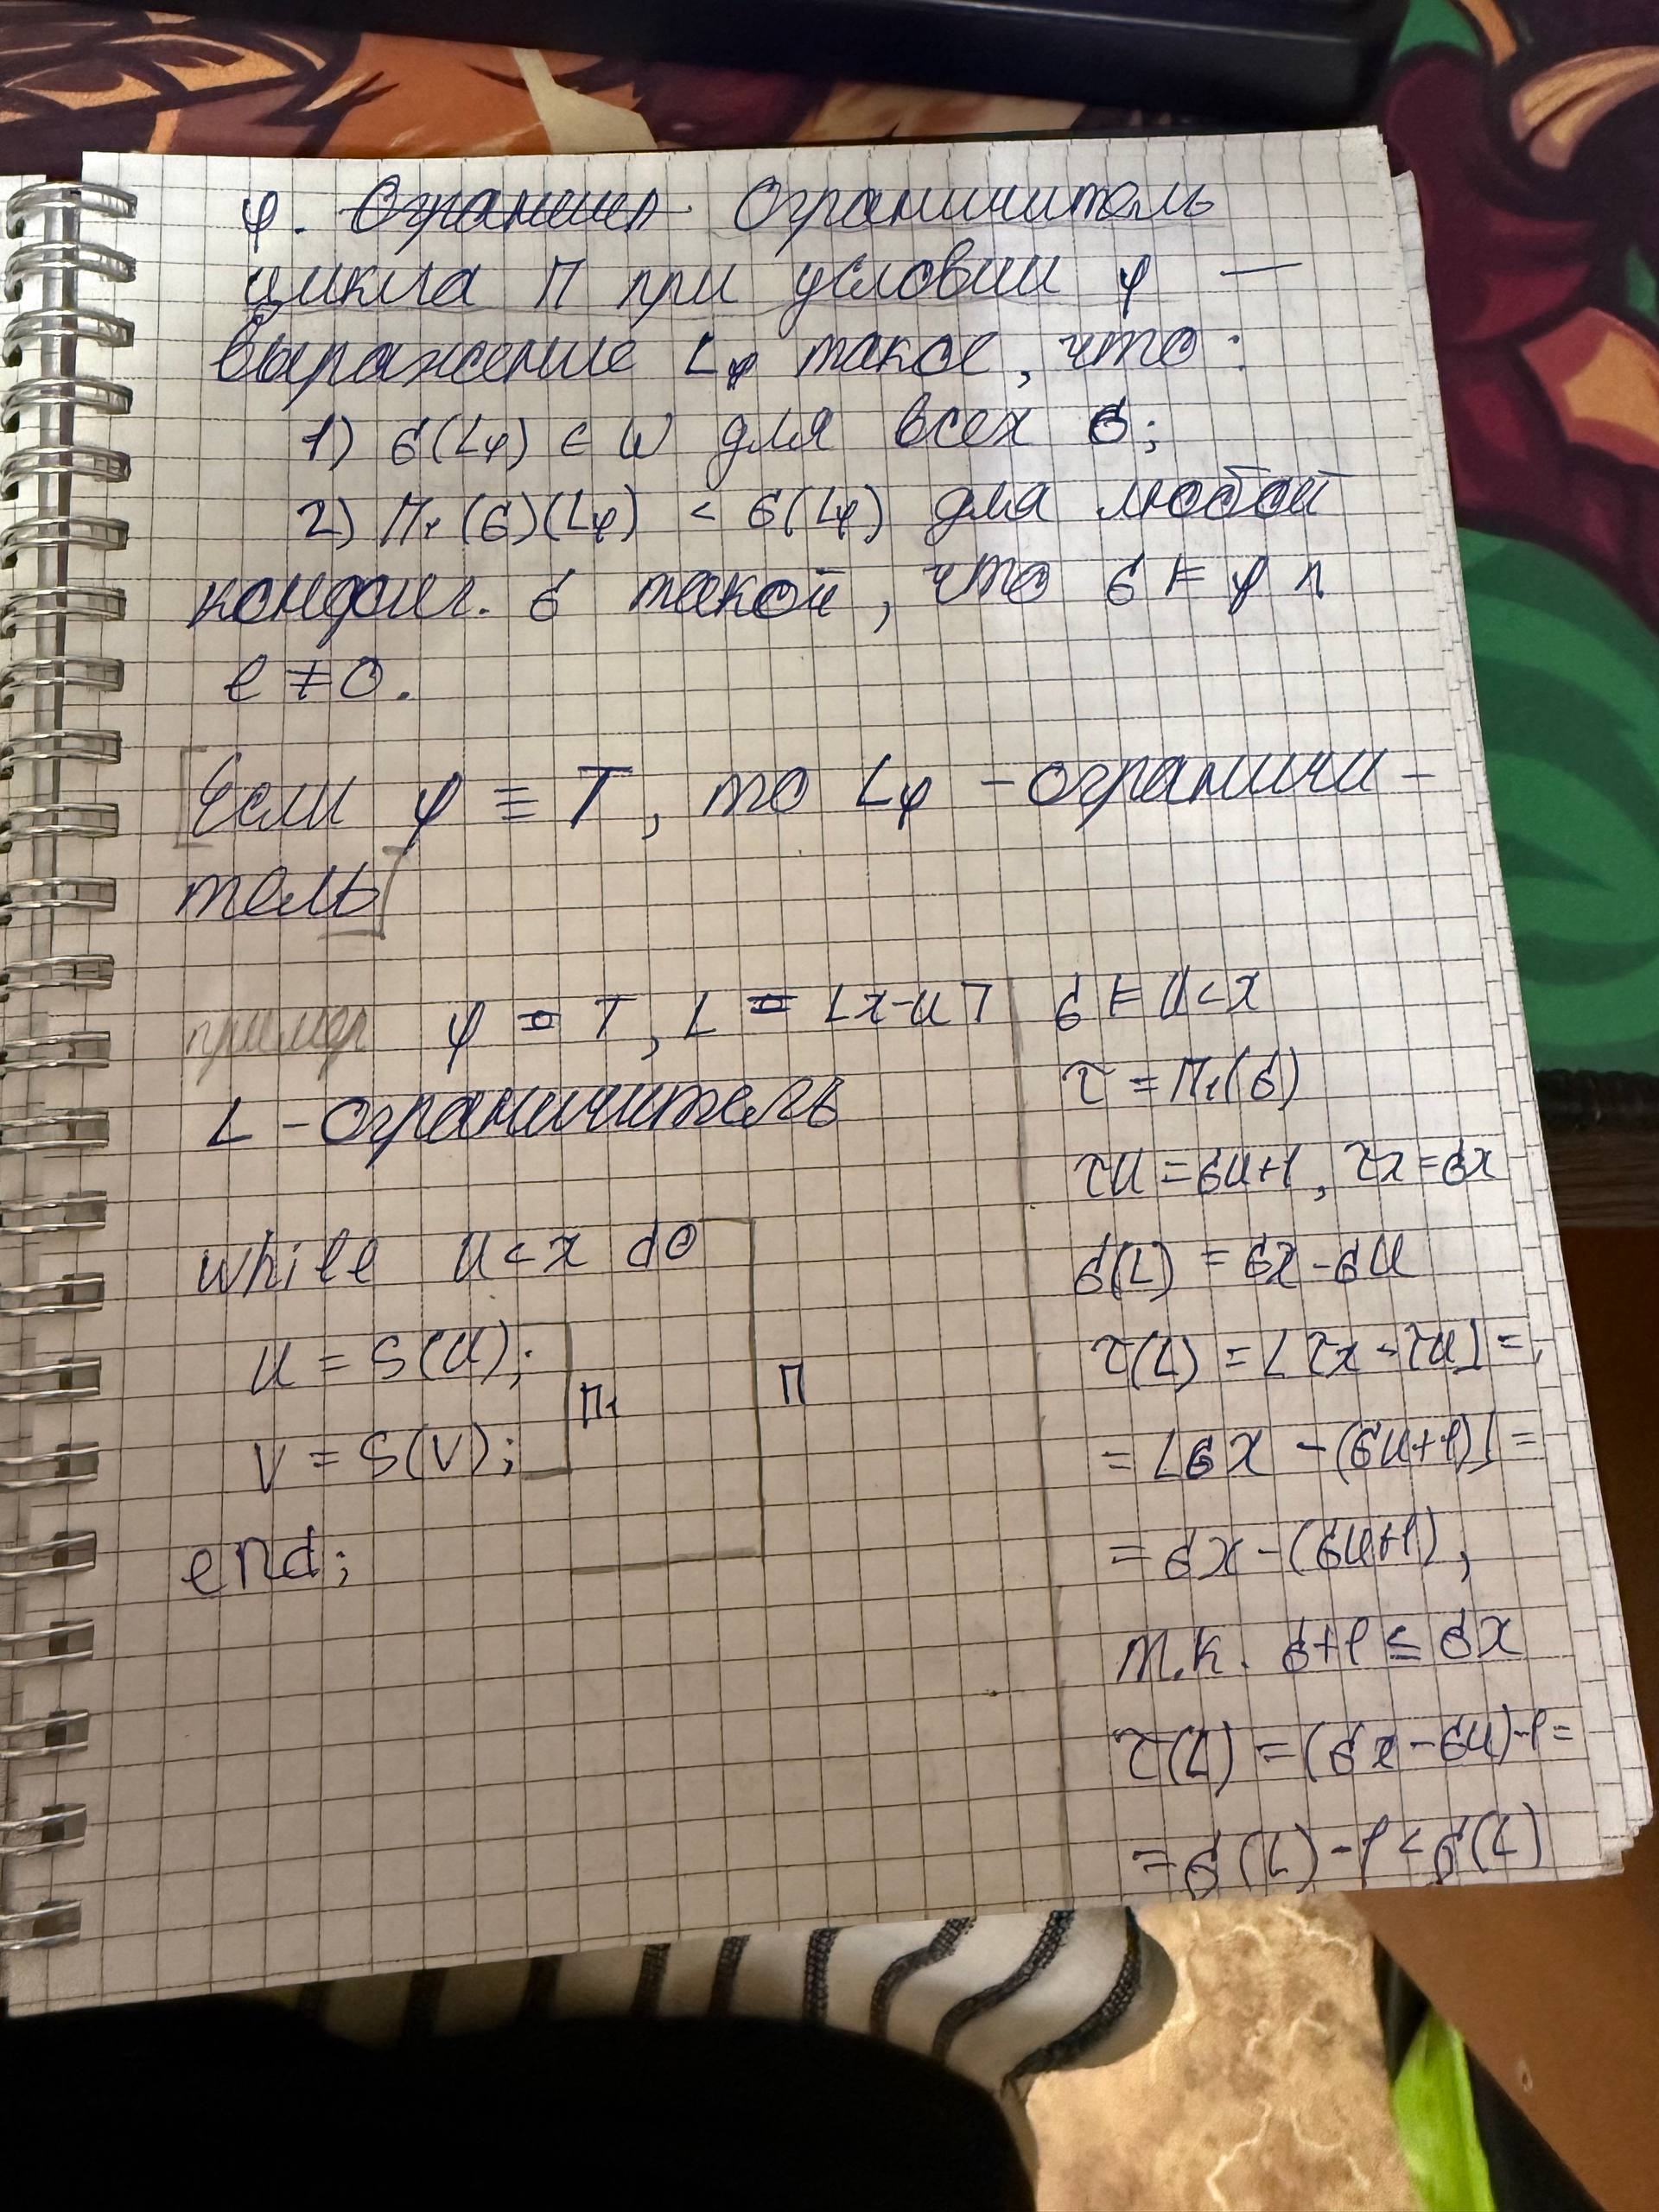 φ. Ограничител Ограничитель
цикла П при условии φ —
выражение Lφ такое, что:
1) б(Lφ) ∈ W для всех б;
2) П₁(б)(Lφ) < б(Lφ) для любой
конфиг. б такой, что б ⊨ φ ∧
e ≠ 0.
[Если φ ≡ T, то Lφ - ограничи-
тель]
пример φ = T, L = ⌊x-u⌉
L - ограничитель
while u < x do
u = S(u);
v = S(v);
П₁
П
end;
б ⊨ u < x
τ = П₁(б)
τu = бu+1, τx = бx
б(L) = бx - бu
τ(L) = ⌊τx - τu⌋ =
= ⌊бx - (бu+1)⌋ =
= бx - (бu+1),
т.к. б+1 ≤ бx
τ(L) = (бx - бu)-1 =
= б(L) - 1 < б(L)